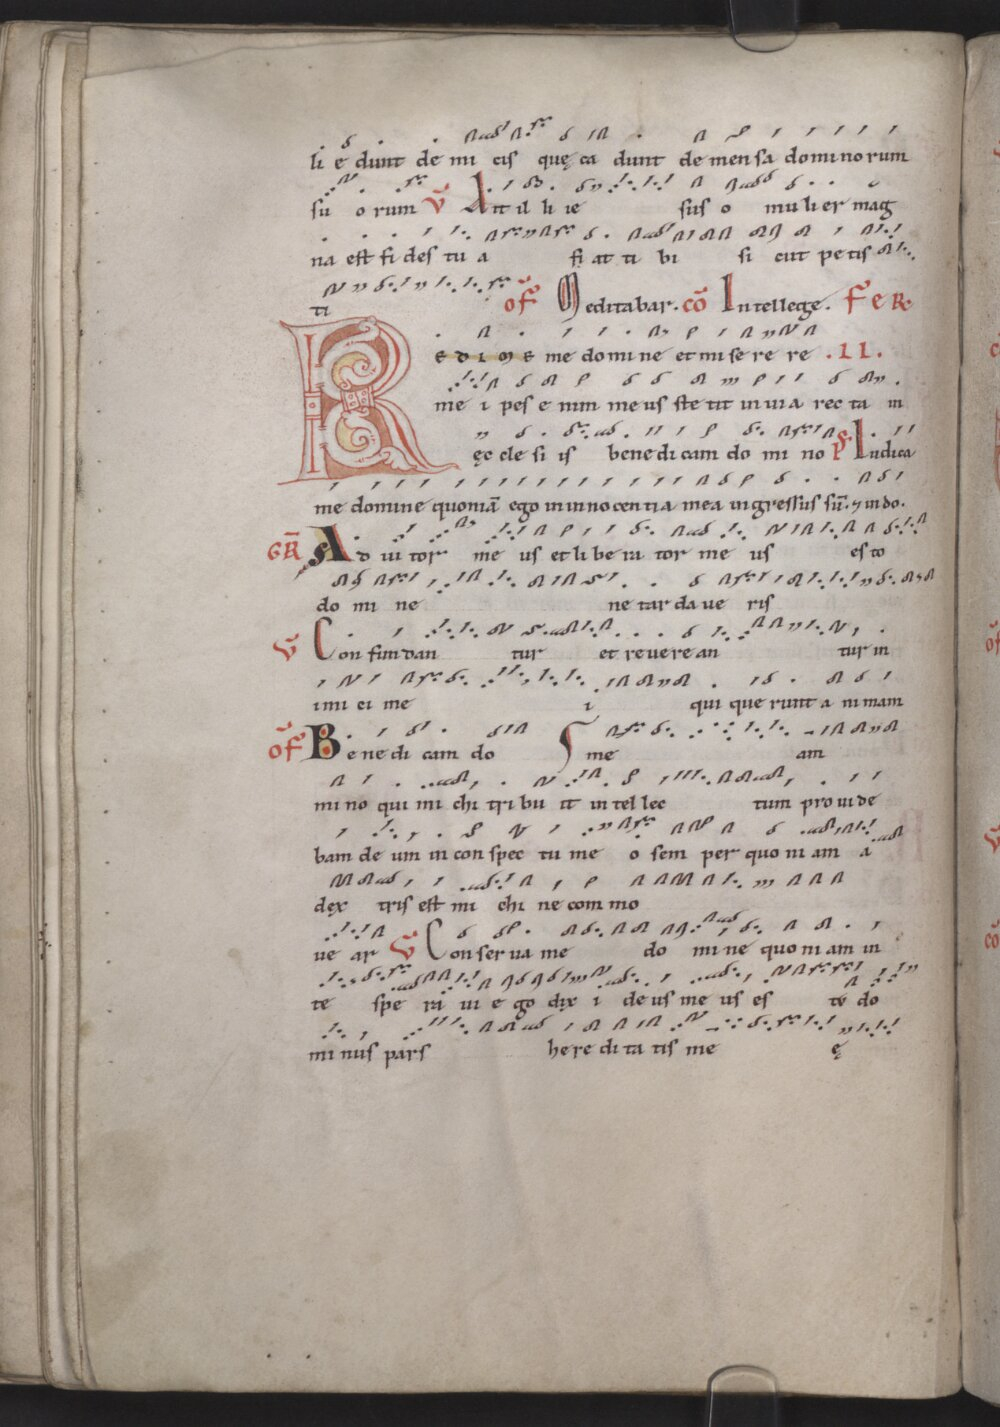 li e dunt de mi cis quę ca dunt de men sa do mi no rum
su o rum V̄ At il li ie sus o mu li er mag
na est fi des tu a fi at ti bi si cut pe tis
ti OF̄ Meditabar. CŌ Intellege. F̄ E R̄
REDIME me do mi ne et mi se re re .II.
me i pes e nim me us ste tit in ui a rec ta in
ęc cle si is bene di cam do mi no p̄s Iudica
me domine quoniā ego in innocentia mea ingressus sū. & in do.
GR̄ Ad iu tor me us et li be ra tor me us es to
do mi ne ne tar da ue ris
V̄ Con fun dan tur et re ue re an tur in
imi ci me i qui que runt a nimam
OF̄ Be ne di cam do me am
mi no qui mi chi tri bu it in tel lec tum pro ui de
bam de um in con spec tu me o sem per quo ni am a
dex tris est mi chi ne com mo
ue ar V̄ Con ser ua me do mi ne quo ni am in
te spe ra ui e go dix i de us me us es te do
mi nus pars he re di ta tis me ę